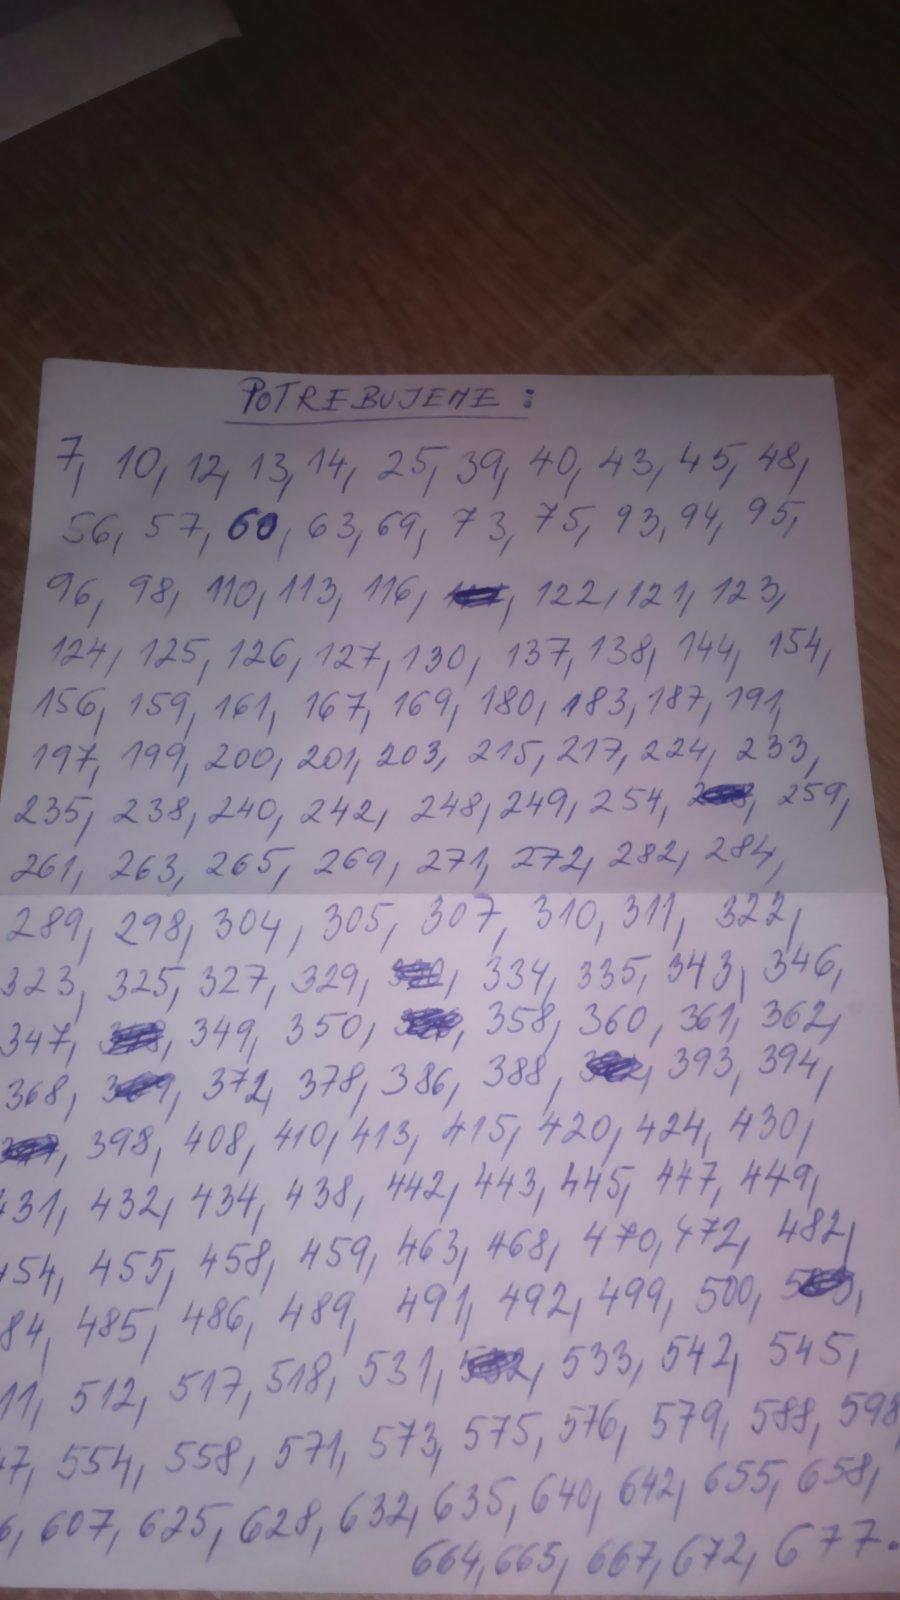 POTREBUJEME:
7, 10, 12, 13, 14, 25, 39, 40, 43, 45, 48,
56, 57, 60, 63, 69, 73, 75, 93, 94, 95,
96, 98, 110, 113, 116, 122, 121, 123,
124, 125, 126, 127, 130, 137, 138, 144, 154,
156, 159, 161, 167, 169, 180, 183, 187, 191,
197, 199, 200, 201, 203, 215, 217, 224, 233,
235, 238, 240, 242, 248, 249, 254, 259,
261, 263, 265, 269, 271, 272, 282, 284,
289, 298, 304, 305, 307, 310, 311, 322,
323, 325, 327, 329, 334, 335, 343, 346,
347, 349, 350, 358, 360, 361, 362,
368, 372, 378, 386, 388, 393, 394,
398, 408, 410, 413, 415, 420, 424, 430,
431, 432, 434, 438, 442, 443, 445, 447, 449,
454, 455, 458, 459, 463, 468, 470, 472, 482,
84, 485, 486, 489, 491, 492, 499, 500,
11, 512, 517, 518, 531, 533, 542, 545,
47, 554, 558, 571, 573, 575, 576, 579, 588, 598
6, 607, 625, 628, 632, 635, 640, 642, 655, 658,
664, 665, 667, 672, 677.